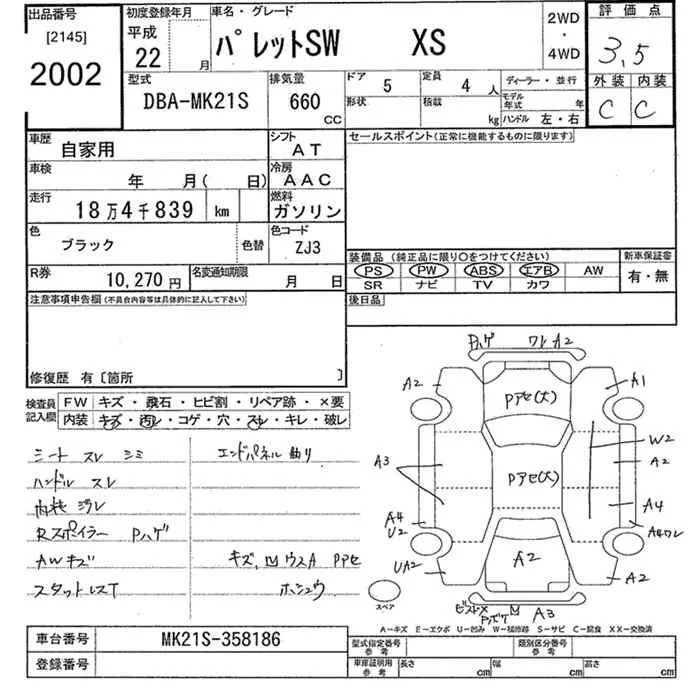 出品番号
[2145]
2002
初度登録年月
平成
22 月
車名・グレード
パレットSW XS
2WD
・
4WD
評価点
3.5
外装 内装
C C
型式
DBA-MK21S
排気量
660
CC
ドア 5
定員 4 人
形状
積載 kg
ディーラー・並行
モデル年式 年
ハンドル 左・右
車歴
自家用
シフト
AT
車検
年 月( 日)
冷房
AAC
走行
18万4千839 km
燃料
ガソリン
色
ブラック
色替
色コード
ZJ3
R券
10,270円
名変通知期限
月 日
セールスポイント(正常に機能するものに限ります)
装備品 (純正品に限り〇をつけてください)
PS PW ABS エアB AW
SR ナビ TV カワ
新車保証書
有・無
後日品
注意事項申告欄(不具合内容等は具体的に記入して下さい)
修復歴 有〔箇所 〕
検査員記入欄
FW キズ・飛石・ヒビ割・リペア跡・×要
内装 キズ・汚レ・コゲ・穴・スレ・キレ・破レ
シート スレ シミ
ハンドル スレ
内装 汚レ
Rスポイラー Pハゲ
AWキズ
スタットレスT
エンドパネル曲り
キズ、凹 ウスA Pアセ
ホシュウ
Pハゲ ワレ A2
A2
Pアセ(大)
A1
W2
A3
A2
Pアセ(大)
A4
A4
U2
A4ワレ
UA2
A2
A2
スペア
凹 A3
A-キズ E-エクボ U-凹み W-補修跡 S-サビ C-腐食 XX-交換済
車台番号
MK21S-358186
登録番号
型式指定番号
参考
類別区分番号
参考
車庫証明用
参考
長さ cm
幅 cm
高さ cm